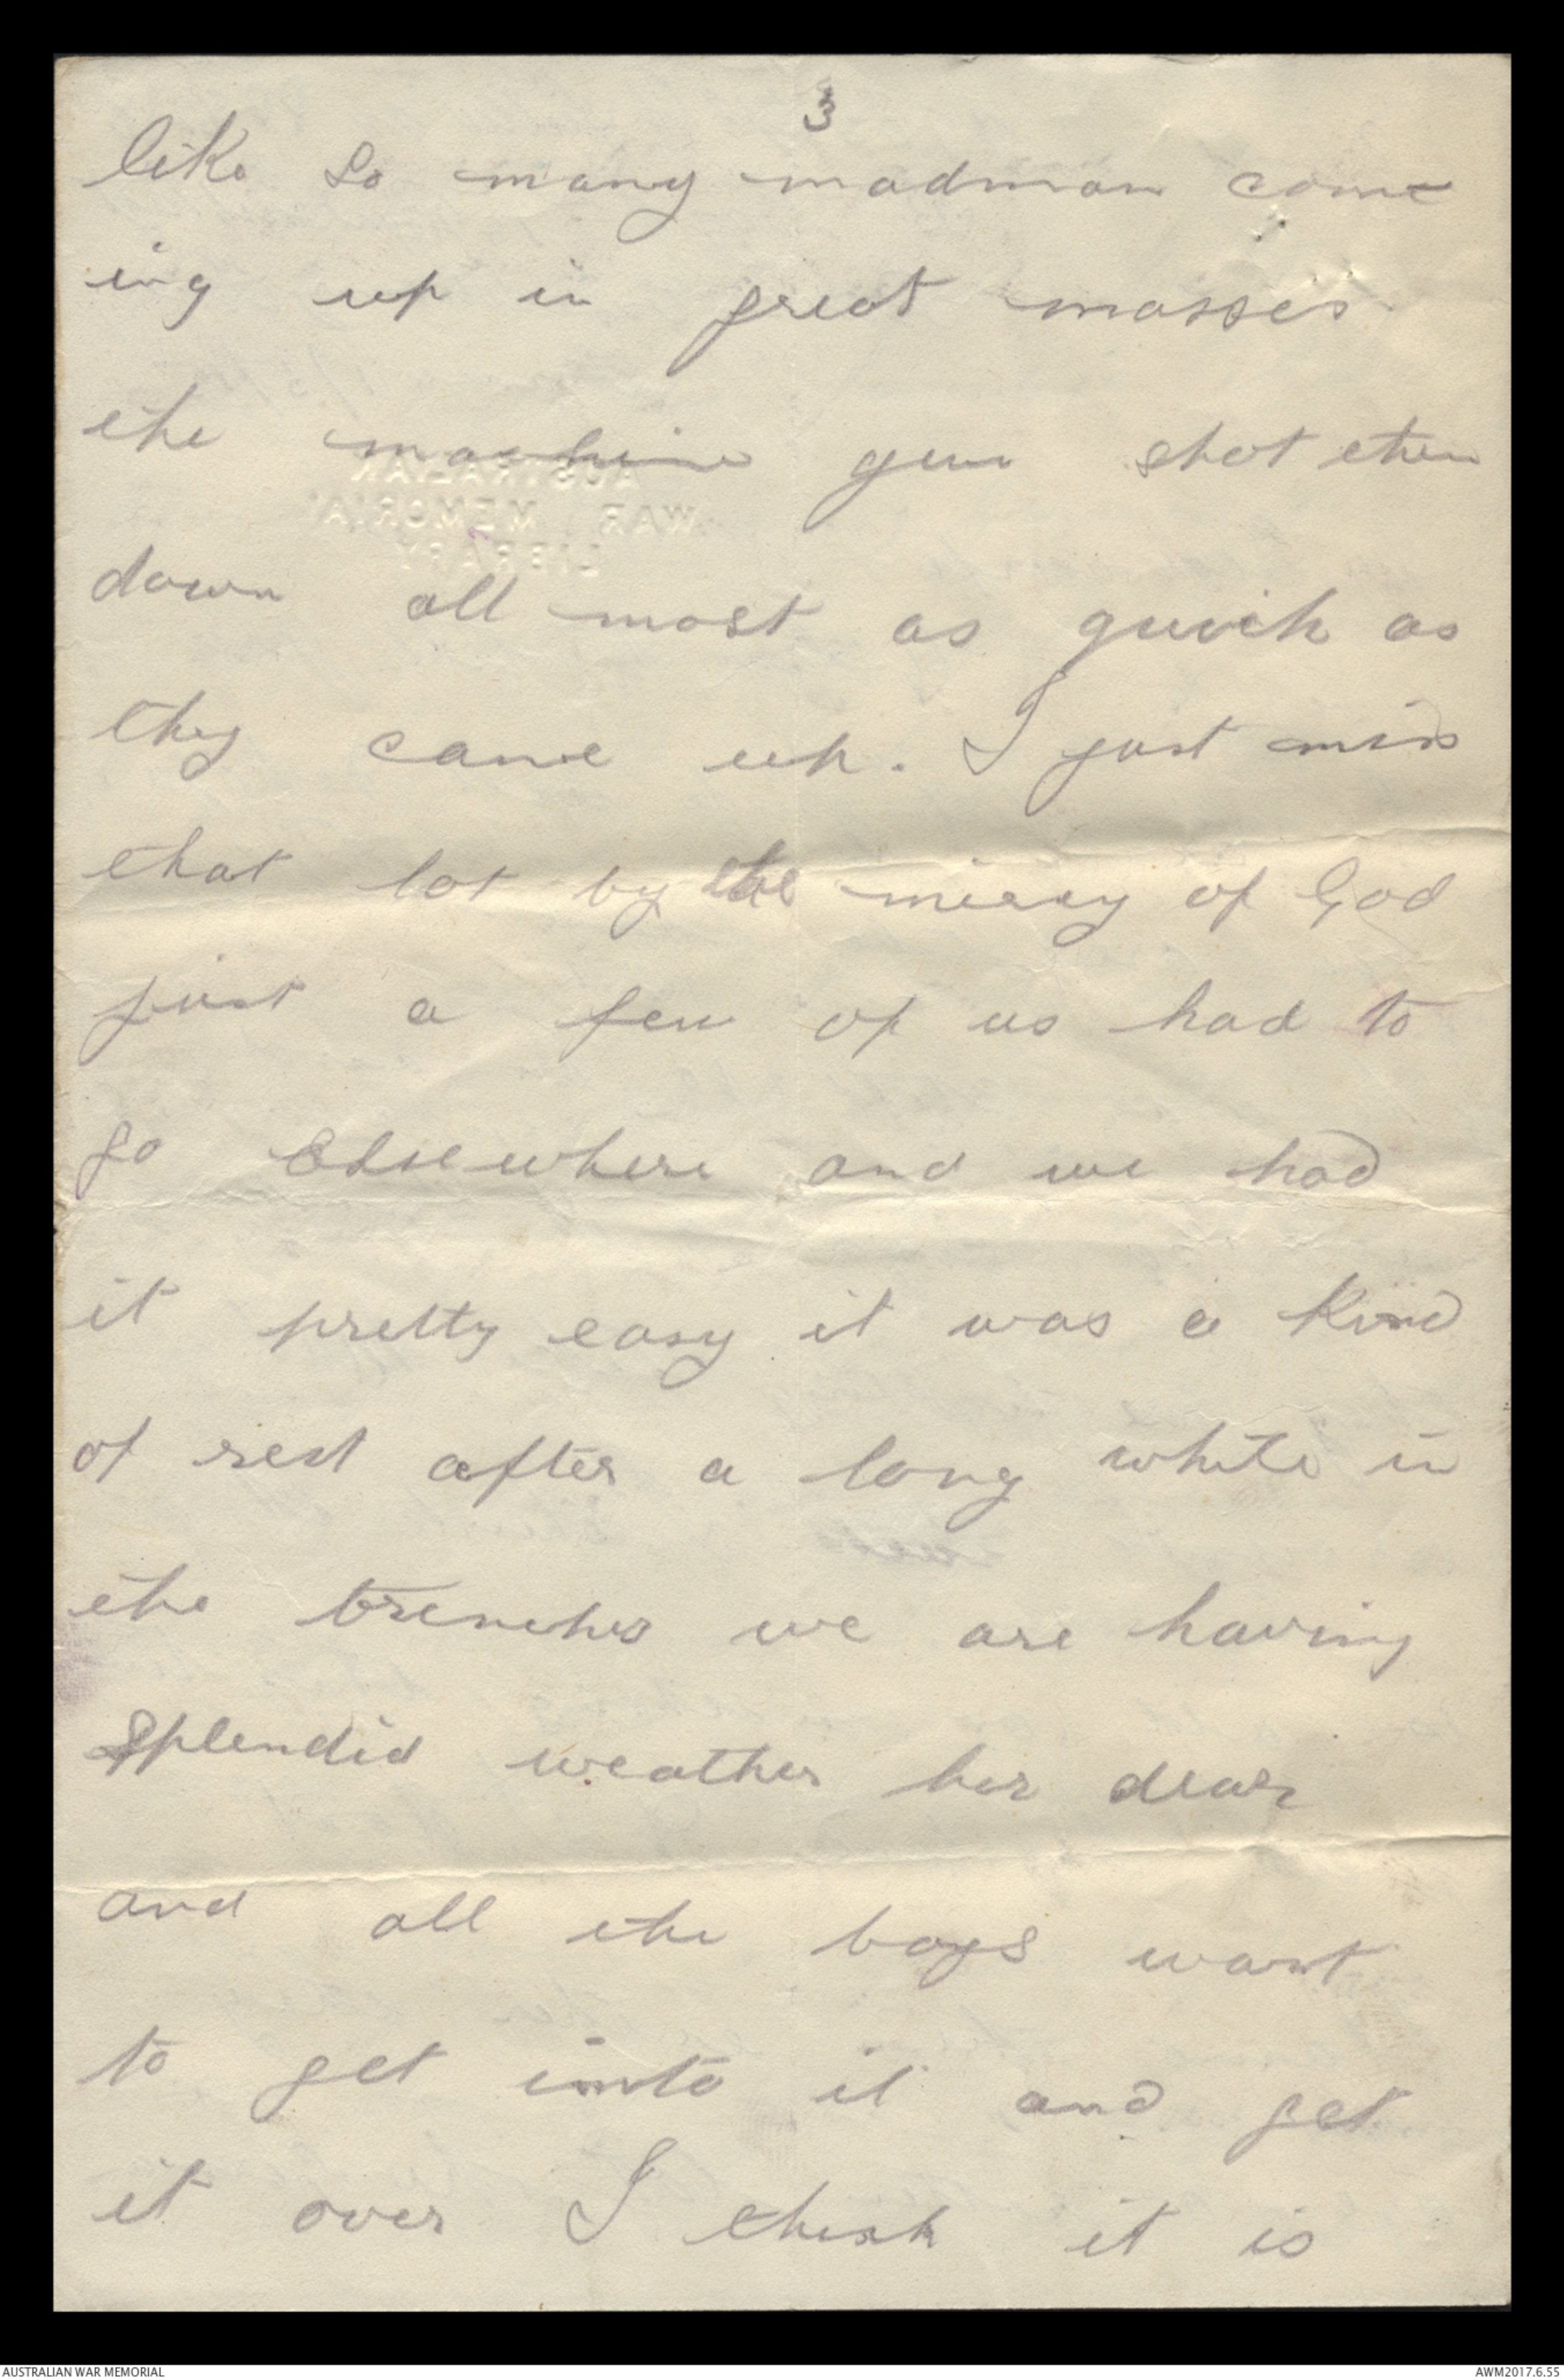 3
like so many madman come
ing up in great masses
the machine gun shot them
down all most as quick as
they came up. I just miss
that lot by the mercy of God
just a few of us had to
go elsewhere and we had
it pretty easy it was a kind
of rest after a long while in
the trenches we are having
splendid weather her dear
and all the boys want
to get into it and get
it over I think it is
AUSTRALIAN
WAR MEMORIAL
LIBRARY
AUSTRALIAN WAR MEMORIAL
AWM2017.6.55